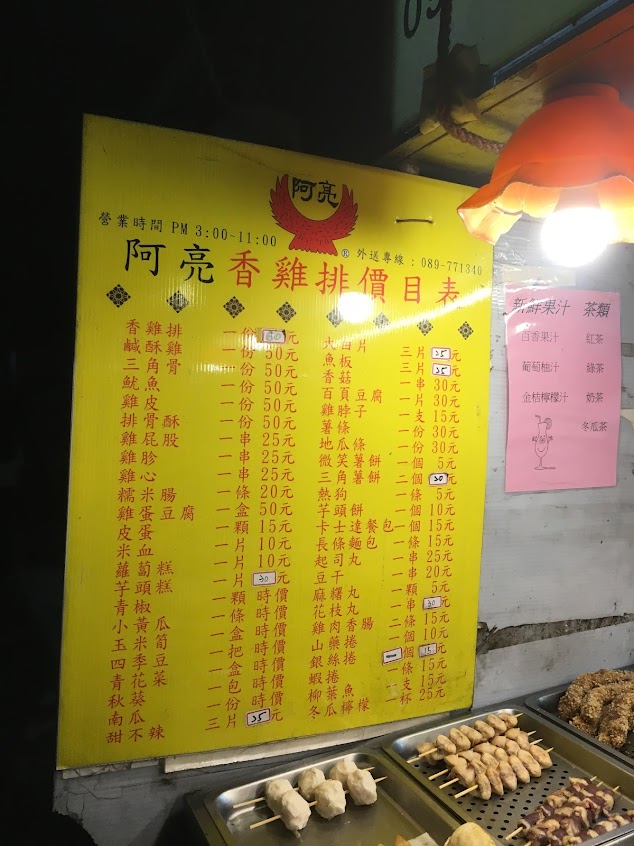 阿亮
營業時間 PM 3:00~11:00
® 外送專線：089-771340
阿亮香雞排價目表
香雞排 一份 60元
鹹酥雞 一份 50元
三角骨 一份 50元
魷魚 一份 50元
雞皮 一份 50元
排骨酥 一份 50元
雞屁股 一串 25元
雞胗 一串 25元
雞心 一串 25元
糯米腸 一條 20元
雞蛋豆腐 一盒 50元
皮蛋 一顆 15元
米血 一片 10元
蘿蔔糕 一片 10元
芋頭糕 一片 30元
青椒 一顆 時價
小黃瓜 一條 時價
玉米筍 一盒 時價
四季豆 一把 時價
青花菜 一盒 時價
秋葵 一包 時價
南瓜 一份 時價
甜不辣 三片 25元
片 三片 25元
魚板 三片 25元
香菇 一串 30元
百頁豆腐 一片 30元
雞脖子 一支 15元
薯條 一份 30元
地瓜條 一份 30元
微笑薯餅 一個 5元
三角薯餅 二個 20元
熱狗 一條 5元
芋頭餅 一個 10元
卡士達餐包 一個 15元
長條麵包 一條 15元
起司丸 一串 25元
豆干 一串 20元
麻糬丸 一顆 5元
花枝丸 一串 30元
雞肉香腸 二條 15元
山藥捲 一個 10元
銀絲捲 個 15元
蝦捲 一條 15元
柳葉魚 一支 15元
冬瓜檸檬 一杯 25元
新鮮果汁 茶類
百香果汁 紅茶
葡萄柚汁 綠茶
金桔檸檬汁 奶茶
冬瓜茶